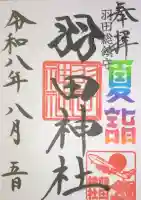 奉拝
羽田総鎮守
夏詣
羽田神社
令和八年八月五日